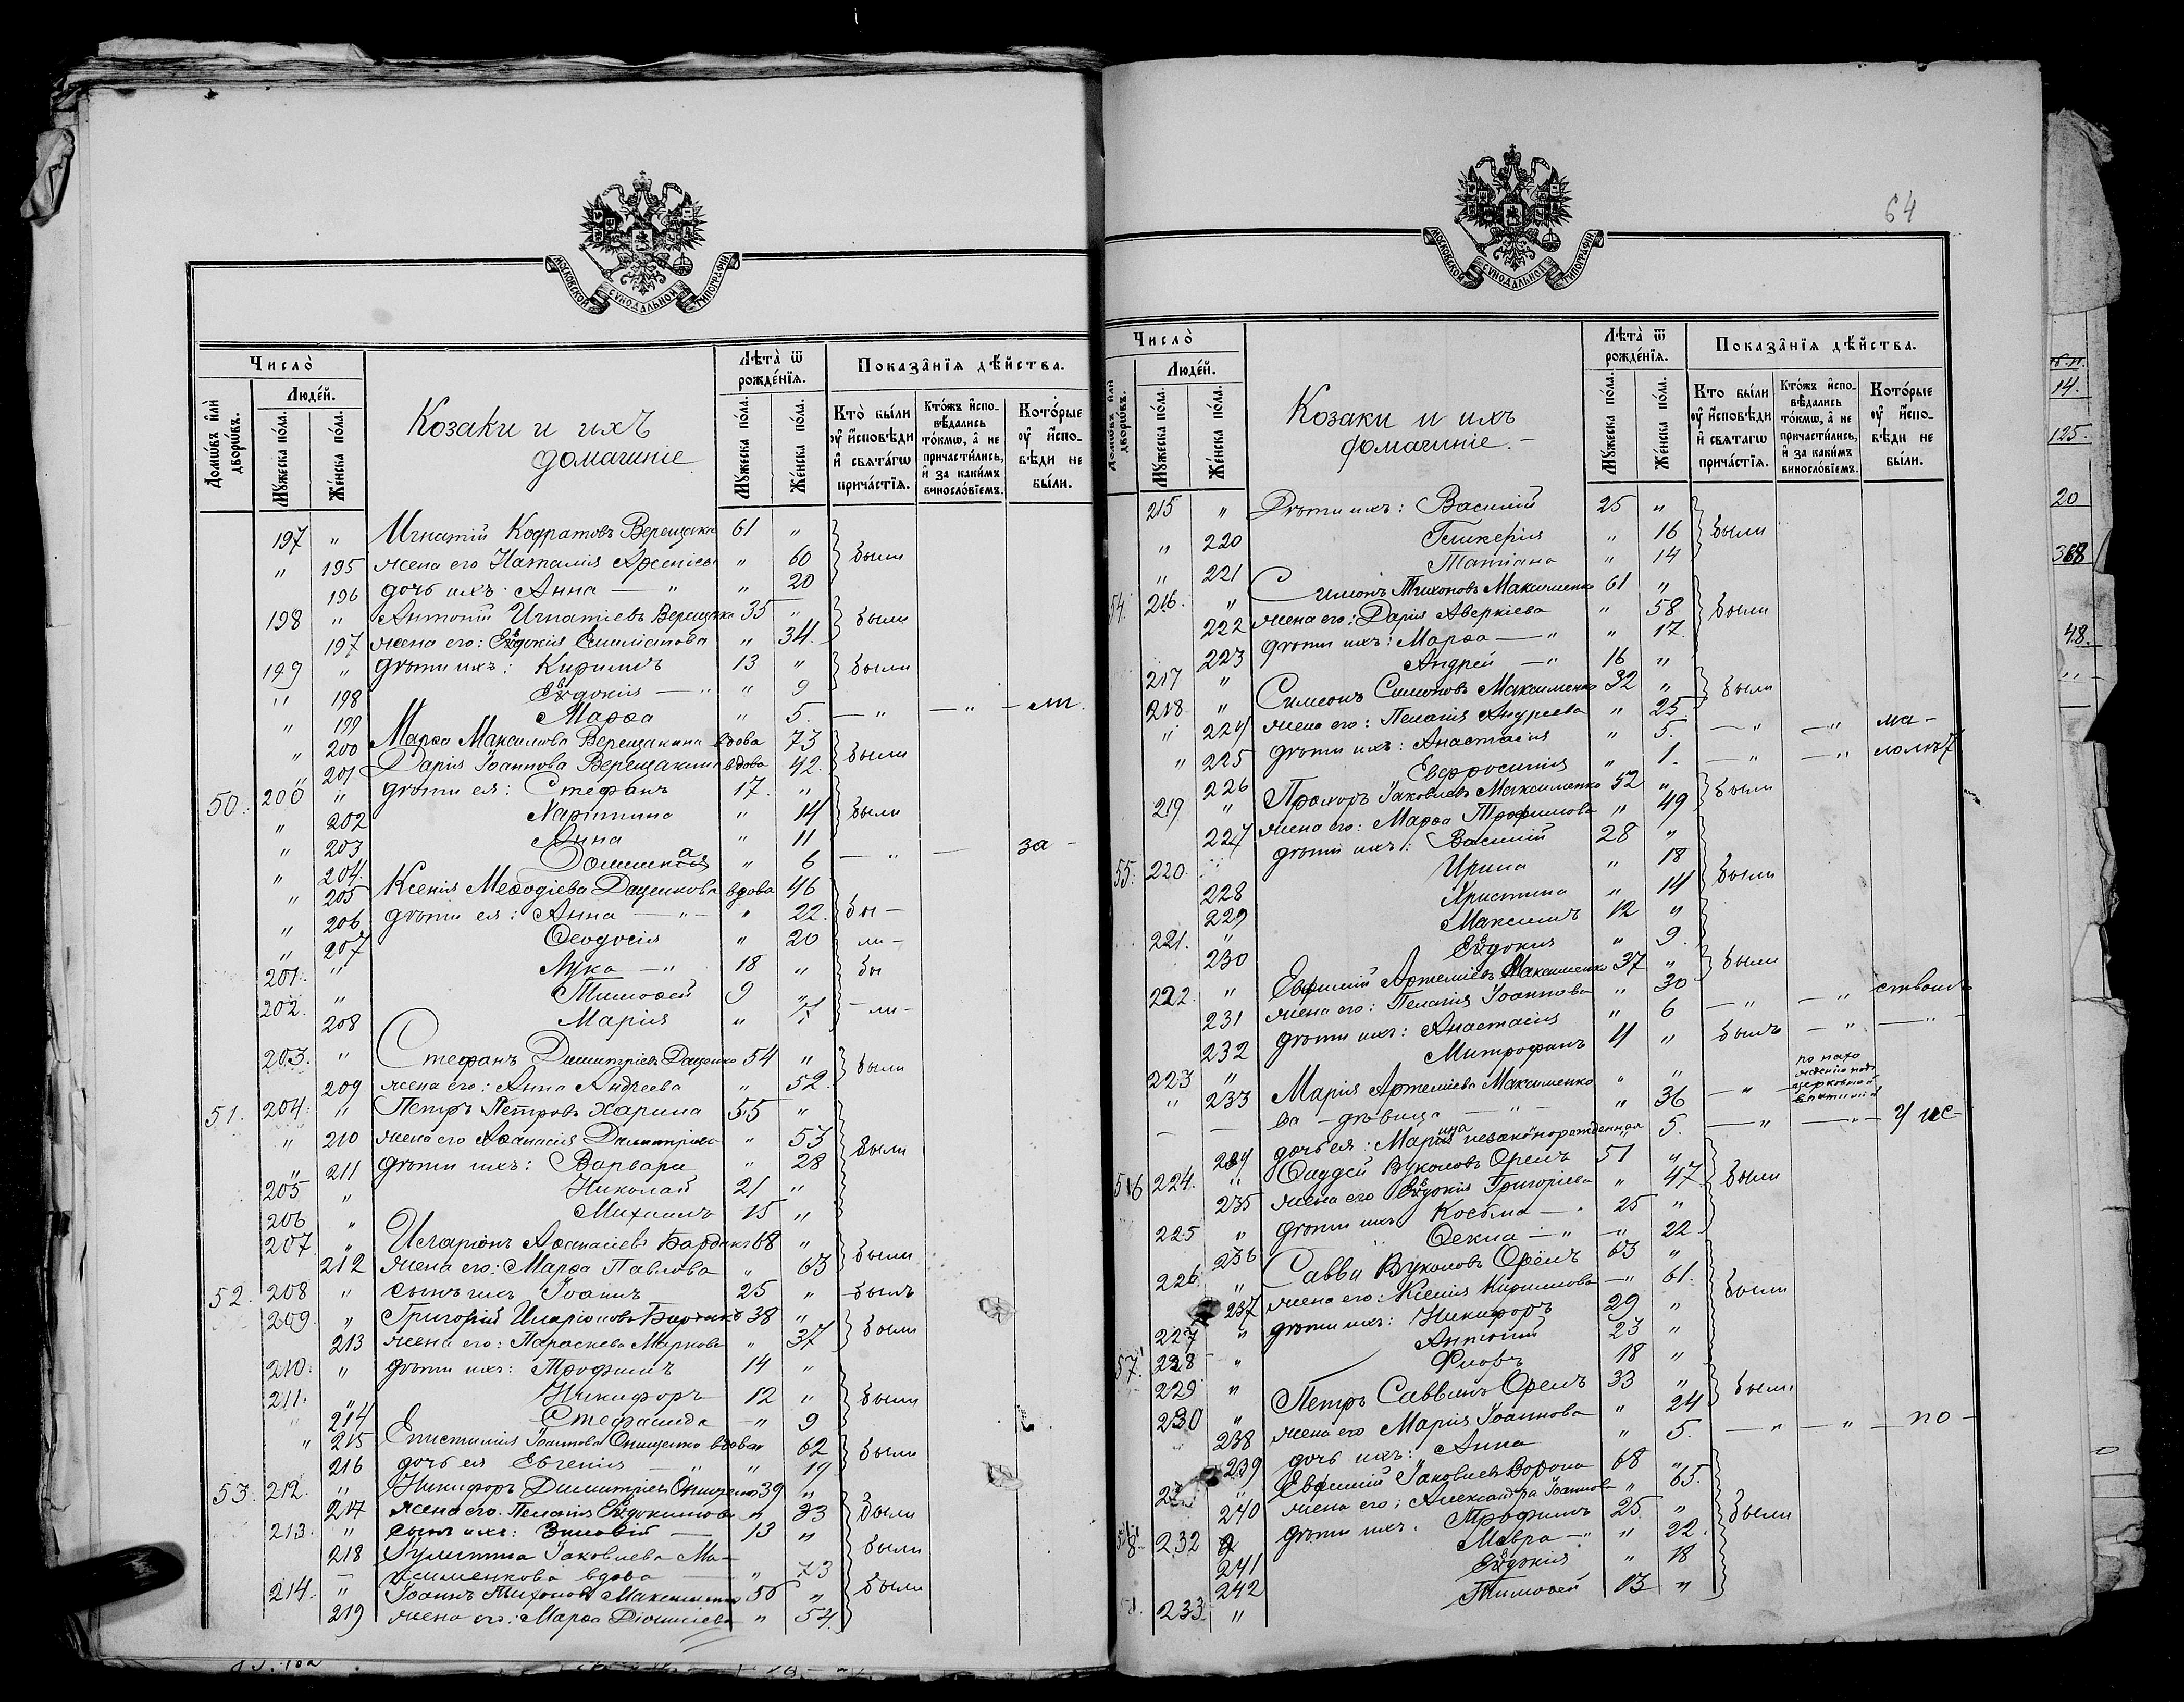 МОСКОВСКОЙ СѴНОДАЛЬНОЙ ТИПОГРАФІИ
Число̀
Лѣта̀ ѿ рожде́нїѧ.
Показа̂нїѧ дѣ́йства.
Домѡ́въ и҆лѝ дворѡ́въ.
Люде́й.
Мꙋ́жеска по́ла.
Же́нска по́ла.
Козаки и ихъ
домашніе
Мꙋ́жеска по́ла.
Же́нска по́ла.
Кто̀ бы́ли ᲂу҆ и҆сповѣди и҆ свѧта́гѡ прича́стїѧ.
Кто́жъ и҆спо-вѣдались то́кмѡ, а҆ не причасти́лись, и҆ за каки́мъ виносло́вїемъ.
Кото́рые ᲂу҆ и҆спо-вѣди не бы́ли.
197 " Игнатій Кодратовъ Верещака 61 "
" 195 жена его Наталія Арсеніева " 60 были
196 дочь ихъ: Анна — " " 20
198 " Антоній Игнатіевъ Верещака 35 "
197 жена его: Евдокія " 34. были
199 " дѣти ихъ: Кириллъ 13 " были
" 198 Евдокія — " " 9
" 199 Марѳа " 5. — " — " — ли.
" 200 Марѳа Максимова Верещакина вдова 73
" 201 Дарія Іоаннова Верещакина вдова 42. были
50. 200 " дѣти ея: Стефанъ 17. "
" 202 Харитина " 14 были
" 203 Анна " 11
" 204. Домникія " 6 — " — за -
" 205 Ксенія Меѳодіева Даценкова вдова 46
" 206 дѣти ея: Анна — " — " 22. бы -
" 207 Ѳеодосія " 20 ли -
201. " Лука — " 18 " бы
202. " Тимоѳей 9 "
208 Марія " — ли -
203. " Стефанъ Димитріевъ Даценко 54 "
209 жена его: Анна Андреева " 52. были
51. 204. " Петръ Петровъ Харина 55 "
" 210 жена его Аѳанасія Димитріева " 53
" 211 дѣти ихъ: Варвара " 28 были
205 " Николай 21 "
206 " Михаилъ 15 "
207 " Иларіонъ Аѳанасіевъ 68 "
212 жена его: Марѳа Павлова " 63 были
52. 208 " сынъ ихъ Іоаннъ 25 " былъ
209. " Григорій Иларіоновъ 38 "
213 жена его: Параскева Маркова " 37 были
210. " дѣти ихъ: Трофимъ 14 "
211. " Никифоръ 12 " были
" 214 Стефанида — " 9
" 215 Епистимія Іоаннова Онищенко вдова 62
216 дочь ея Евгенія " 19 были
53. 212. " Никифоръ Димитріевъ Онищенко 39 "
217 жена его. Пелагія Евдокимова " 33 были
213. " сынъ ихъ: Зиновій — 13 "
218 Гулитта Іаковлева Ма- были
— ксименкова вдова — " 73
214. " Іоаннъ Тихоновъ Максименко 56 " были
219 жена его: Марѳа Діонисіева " 54.
64
МОСКОВСКОЙ СѴНОДАЛЬНОЙ ТИПОГРАФІИ
Число̀
Лѣта̀ ѿ рожде́нїѧ.
Показа̂нїѧ дѣ́йства.
Домѡ́въ и҆лѝ дворѡ́въ.
Люде́й.
Мꙋ́жеска по́ла.
Же́нска по́ла.
Козаки и ихъ
домашніе. -
Мꙋ́жеска по́ла.
Же́нска по́ла.
Кто бы́ли ᲂу҆ и҆сповѣди и҆ свѧтагѡ прича́стїѧ.
Кто́жъ и҆спо-вѣдались то́кмѡ, а҆ не причасти́лись, и҆ за каки́мъ винословїемъ.
Кото́рые ᲂу҆ и҆спо-вѣди не бы́ли.
215 " Дѣти ихъ: Василій 25 "
" 220 Гликерія " 16 были
" 221 Татіана " 14
54. 216. " Симонъ Тихоновъ Максименко 61 "
222 жена его: Дарія Аверкіева " 58 были
223 дѣти ихъ: Марѳа — " " 17.
217 " Андрей — " 16 "
218 " Симеонъ Симоновъ Максименко 32 " были
" 224 жена его: Пелагія Андреева " 25
" 225 дѣти ихъ: Анастасія " 5. — " — " ма -
226 Евфросинія " 1. — " — " лолѣт
219 " Прохоръ Іаковлевъ Максименко 52 " были
227 жена его: Марѳа Трофимова " 49
55. 220. дѣти ихъ: Василій 28 "
228 Ирина " 18 были
229 Христина " 14
221. " Максимъ 12 "
230 Евдокія " 9.
222. " Евфимій Артеміевъ Максименко 37 " были
231 жена его: Пелагія Іоаннова " 30
232 дѣти ихъ: Анастасія " 6 — " — " ствомъ
223 " Митрофанъ 11 " былъ — " — " —
" 233 Марія Артеміева Максименко " " по нахо
жденію подъ
церковной
епитиміей
— — ва - дѣвица — " — " 36 — "
234 дочь ея: Марина незаконорожденная 5. — " — " — у ис-
56 224. " Ѳаддей Вуколовъ Орелъ 51 "
235 жена его Евдокія Григоріева " 47. были
225 " дѣти ихъ Косьма — " 25 "
236 Ѳекла — " — " 22.
226. " Савва Вуколовъ Орелъ 63 "
237 жена его: Ксенія Кирилова — " 61. были
227 " дѣти ихъ: Никифоръ 29 "
57. 228 " Антоній 23 "
229 " 18 "
230 " Петръ Саввинъ Орелъ 33 " были
238 жена его Марія Іоаннова " 24
239 дочь ихъ: Анна " 5. — " — " — по -
" Евфимій Іаковлевъ Ворона 68 "
240 жена его: Александра Іоаннова " 65.
58. 232 дѣти ихъ. Трофимъ 25. " были
241 Мавра — " " 22.
242 Евдокія " 18
233. " Тимоѳей 13 "
14.
125.
20
368
48.